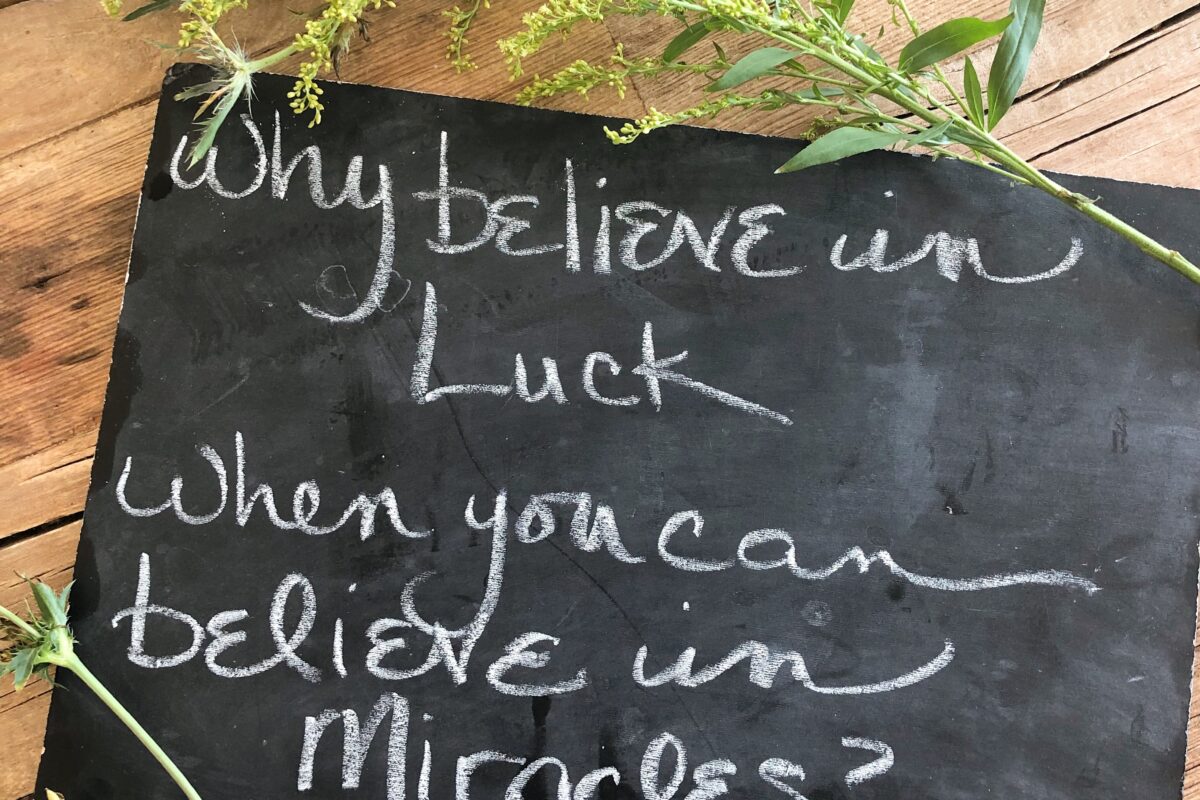 Why believe in
Luck
When you can
believe in
Miracles?